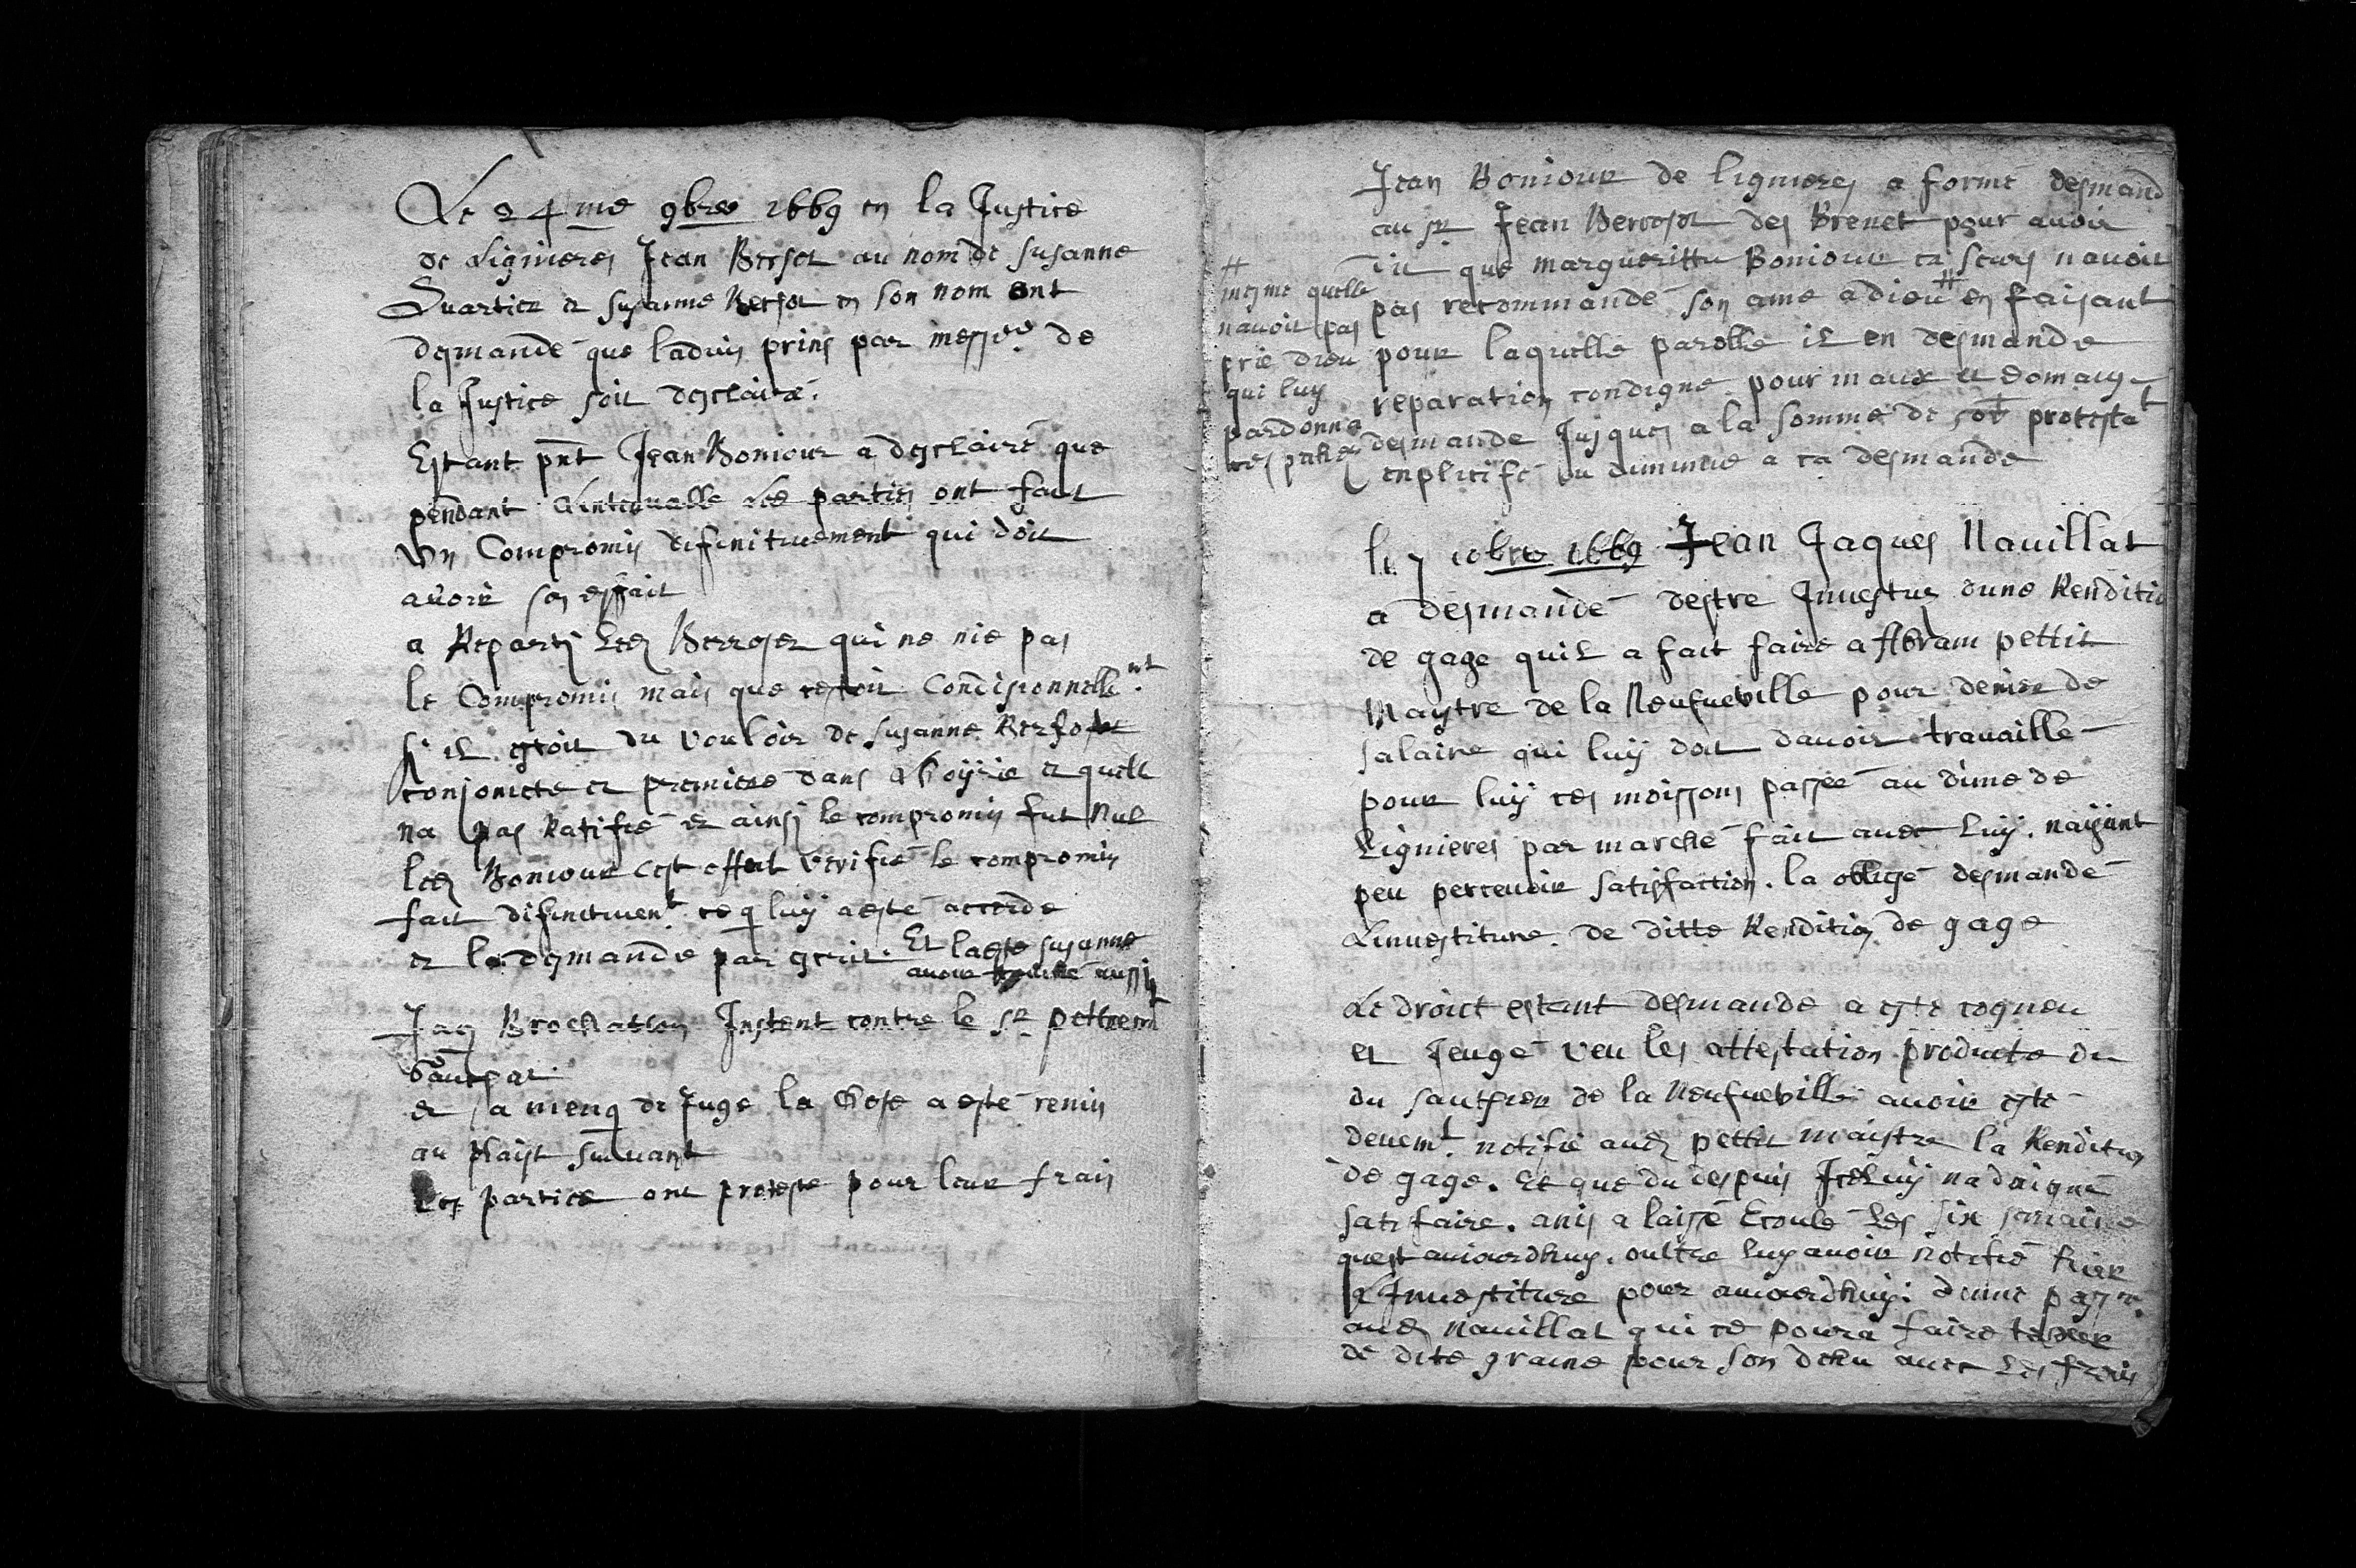 Le 24me 9bre 1669 en la Justice
de Lignieres Jean Berset au nom de Susanne
Quartier et Susanne Berset en son nom ont
desmande que ladvis prins par messrs de
la Justice soit desclairé.
Estant pnt Jean Boniour a desclairé que
pendant Linterualle Les parties ont fait
Un Compromis difinitiuement qui doit
auoir son effait
a Reparty Led Berroset qui ne nie pas
le Compromis mais que cestoit Condisionnellemt
si il estoit du vouloir de Susanne Berset
conjoincte et premiere dans Lhoyrie et quelle
na pas Ratifié et ainsy le compromis fut Nul
led Boniour cest offert verifié le compromis
fait difinitiuent ce q luy a esté accordé
et le desmande par escrit. Et lade Susanne
auoir aussy
Jaq Brochatton Instant contre le Sr pettrem
et a menq de Juge la Chose a esté remis
au plaist suiuant
Les partiee ont proteste pour leur frais
Jean Boniour de lignieres a formé desmand
au sr Jean Berroset des Brenet pour auoir
dit que margueritte Boniour ca seurs nauoit
pas recommandé son ame a dieu # en faisant
# mesme quelle
nauoit pas
prié dieu
qui luy
pardonne
ces peché
pour laquelle parolle il en desmande
reparation condigne pour maux et domag
desmande Jusques a la somme de protestat
enplerifié ou diminué a ca desmande
le 7 10bre 1669 Jean Jaques Nauillat
a desmandé destre Jnuestus dune Renditio
de gage quil a fait faire a Abram pettit
Maytre de la Neufueville pour denier de
salaire qui luy doit dauoir trauaillé
pour luy ces moissons passée au dime de
Lignieres par marché fait auec luy. nayant
peu perceuoir satisfaction. la obligé desmandé
Linuestiture de ditte Rendition de gage
Le droict estant desmandé a esté cogneu
et Jeugé veu les attestation producte du
du sautier de la Neufueville auoir esté
deuemt notifié aud pettit maistre la Rendition
de gage. et que du despuis Jceluy na daigné
satifaire. anis a laissé Ecoulé Les six semaine
quest auiourdhuy. oultre luy auoir notifié hier
LJnuestiture pour auiourdhuy:
aud Nauillat qui ce poura faire taxer
de dite graine pour son dehu auec Les frais